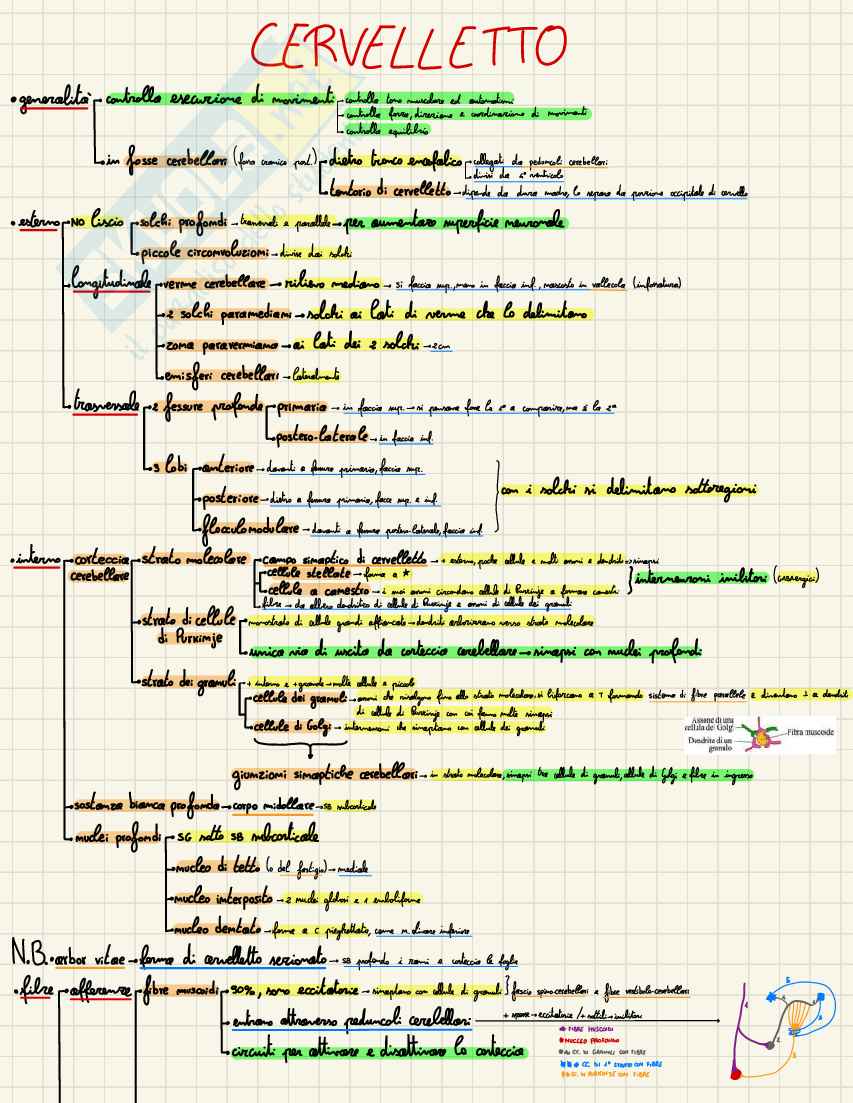 CERVELLETTO
• generalità
controlla esecuzione di movimenti
controlla tono muscolare ed automatismi
controlla forza, direzione e coordinazione di movimenti
controlla equilibrio
in fosse cerebellari (fossa cranica post.)
dietro tronco encefalico
collegati da peduncoli cerebellari
divisi da 4° ventricolo
tentorio di cervelletto → dipende da dura madre, lo separa da porzione occipitale di cervello
• esterno
NO liscio
solchi profondi → trasversali e paralleli → per aumentare superficie neuronale
piccole circonvoluzioni → divise dai solchi
longitudinale
verme cerebellare → rilievo mediano → si faccia sup., meno in faccia inf., nascosto in vallecola (infossatura)
2 solchi paramediani → solchi ai lati di verme che lo delimitano
zona paravermiana → ai lati dei 2 solchi → 2cm
emisferi cerebellari → lateralmente
trasversale
2 fessure profonde
primaria → in faccia sup. → si pensava fosse la 1ª a comparire, ma è la 2ª
postero-laterale → in faccia inf.
3 lobi
anteriore → davanti a fessura primaria, faccia sup.
posteriore → dietro a fessura primaria, facce sup. e inf.
flocculonodulare → davanti a fessura postero-laterale, faccia inf.
con i solchi si delimitano sottoregioni
• interno
corteccia cerebellare
strato molecolare
campo sinaptico di cervelletto → + esterno, poche cellule e molti assoni e dendriti → sinapsi
cellule stellate → forma a *
cellule a canestro → i suoi assoni circondano cellule di Purkinje a formare canestri
interneuroni inibitori (GABAergici)
fibre → da albero dendritico di cellule di Purkinje e assoni di cellule dei granuli
strato di cellule di Purkinje
monostrato di cellule grandi affiancate → dendriti arborizzano verso strato molecolare
unica via di uscita da corteccia cerebellare → sinapsi con nuclei profondi
strato dei granuli
+ interno e + grande → molte cellule e piccole
cellule dei granuli → assoni che risalgono fino allo strato molecolare, si biforcano a T formando sistema di fibre parallele e diventano ⊥ a dendriti
di cellule di Purkinje con cui fanno molte sinapsi
cellule di Golgi → interneuroni che sinaptano con cellule dei granuli
Assone di una
cellula del Golgi
Dendrite di un
granulo
Fibra muscoide
giunzioni sinaptiche cerebellari → in strato molecolare, sinapsi tra cellule di granuli, cellule di Golgi e fibre in ingresso
sostanza bianca profonda → corpo midollare → SB subcorticale
nuclei profondi
SG sotto SB subcorticale
nucleo di tetto (o del fastigio) → mediale
nucleo interposito → 2 nuclei globosi e 1 emboliforme
nucleo dentato → forma a C pieghettato, come n. olivare inferiore
N.B. • arbor vitae → forma di cervelletto sezionato → SB profonda i rami e corteccia le foglie
• fibre
afferenze
fibre muscoidi
90%, sono eccitatorie → sinaptano con cellule di granuli } fascio spino-cerebellari e fibre vestibolo-cerebellari
entrano attraverso peduncoli cerebellari
+ spesse → eccitatorie / + sottili → inibitori
circuiti per attivare e disattivare la corteccia
FIBRE MUSCOIDI
NUCLEO PROFONDO